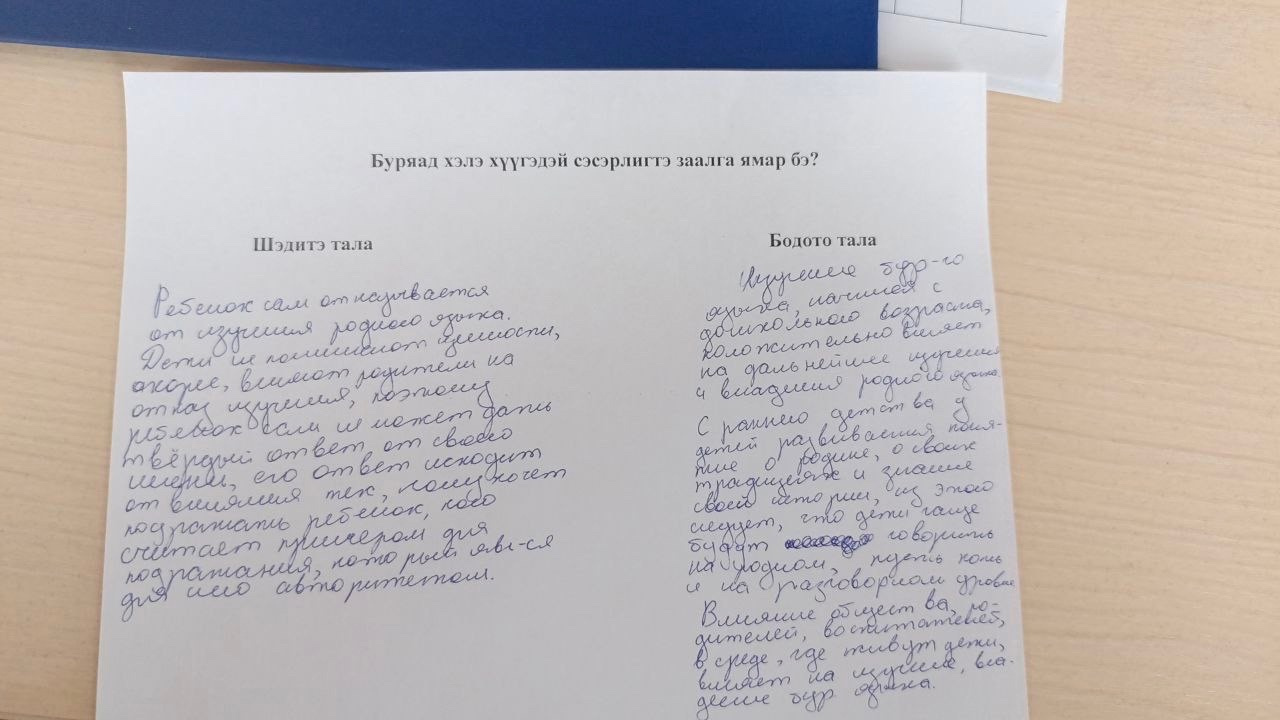 Буряад хэлэ хүүгэдэй сэсэрлигтэ заалга ямар бэ?
Шэдитэ тала
Ребенок сам отказывается
от изучения родного языка.
Дети не понимают ценности,
скорее, влияют родители на
отказ изучения, поэтому
ребенок сам не может дать
твёрдый ответ от своего
имени, его ответ исходит
от влияния тех, кому хочет
подражать ребенок, кого
считает примером для
подражания, который явл-ся
для него авторитетом.
Бодото тала
Изучение бур-го
языка, начиная с
дошкольного возраста,
положительно влияет
на дальнейшее изучение
и владения родного языка
С раннего детства у
детей развивается поня-
тие о родине, о своих
традициях и знание
своей истории, из этого
следует, что дети чаще
будут говорить
на родном, пусть хоть
и на разговорном уровне
Влияние общества, ро-
дителей, воспитателей,
в среде, где живут дети,
влияет на изучение, вла-
дение бур языка.